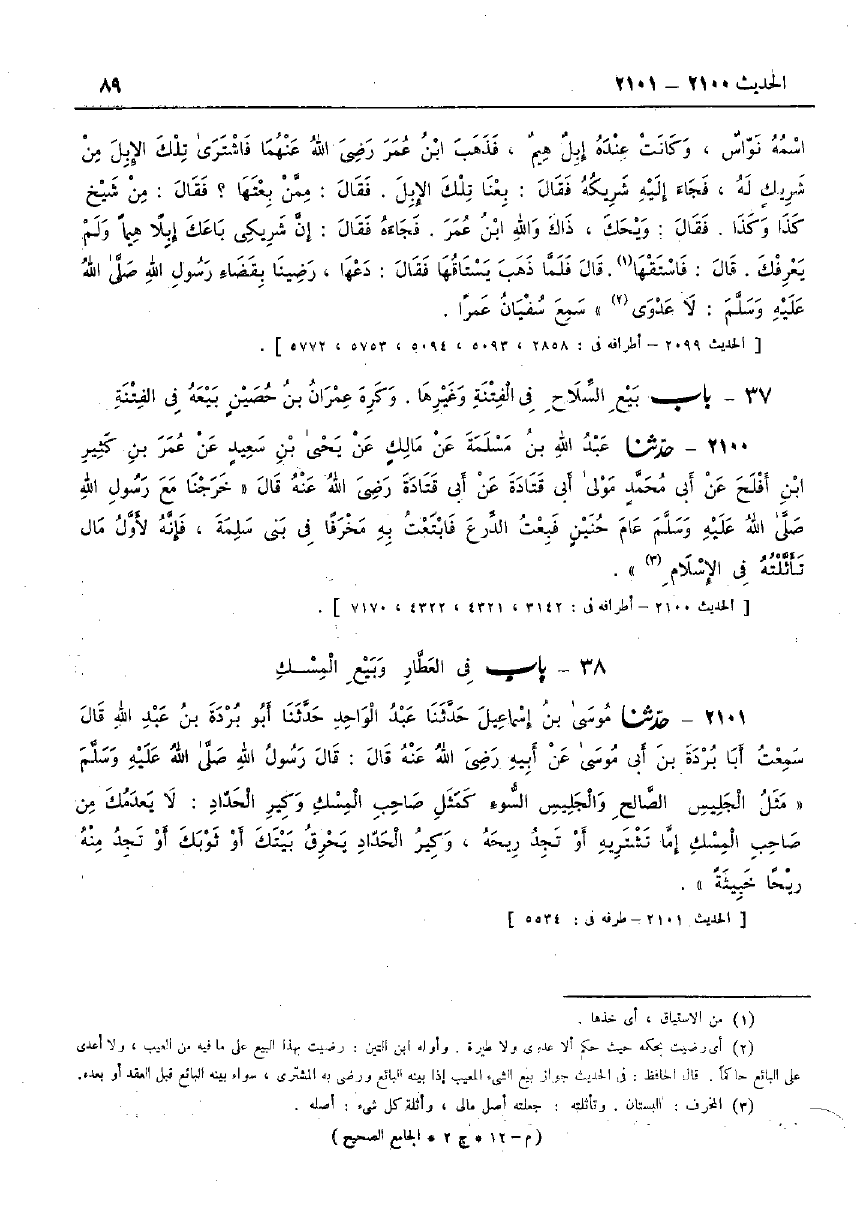 الحديث ٢١٠٠ – ٢١٠١ ٨٩
اسْمُهُ نَوَّاسٌ ، وَكَانَتْ عِنْدَهُ إِبِلٌ هِيمٌ ، فَذَهَبَ ابْنُ عُمَرَ رَضِيَ اللهُ عَنْهُمَا فَاشْتَرَىٰ تِلْكَ الإِبِلَ مِنْ
شَرِيكٍ لَهُ ، فَجَاءَ إِلَيْهِ شَرِيكُهُ فَقَالَ : بِعْنَا تِلْكَ الإِبِلَ . فَقَالَ : مِمَّنْ بِعْتَهَا ؟ فَقَالَ : مِنْ شَيْخٍ
كَذَا وَكَذَا . فَقَالَ : وَيْحَكَ ، ذَاكَ وَاللهِ ابْنُ عُمَرَ . فَجَاءَهُ فَقَالَ : إِنَّ شَرِيكِى بَاعَكَ إِبِلًا هِيمًا وَلَمْ
يَعْرِفْكَ . قَالَ : فَاسْتَقْهَا(١) . قَالَ فَلَمَّا ذَهَبَ يَسْتَاقُهَا فَقَالَ : دَعْهَا ، رَضِينَا بِقَضَاءِ رَسُولِ اللهِ صَلَّىٰ اللهُ
عَلَيْهِ وَسَلَّمَ : لَا عَدْوَى (٢) » سَمِعَ سُفْيَانُ عَمرًا .
[ الحديث ٢٠٩٩ – أطرافه فى : ٢٨٥٨ ، ٥٠٩٣ ، ٥٠٩٤ ، ٥٧٥٣ ، ٥٧٧٢ ] .
٣٧ – باب بَيْعِ السِّلَاحِ فِى الْفِتْنَةِ وَغَيْرِهَا . وَكَرِهَ عِمْرَانُ بنُ حُصَيْنٍ بَيْعَهُ فِى الفِتْنَةِ
٢١٠٠ – حَدَّثَنا عَبْدُ اللهِ بنُ مَسْلَمَةَ عَنْ مَالِكٍ عَنْ يَحْيَىٰ بْنِ سَعِيدٍ عَنْ عُمَرَ بنِ كَثِيرِ
ابْنِ أَفْلَحَ عَنْ أَبِى مُحَمَّدٍ مَوْلَىٰ أَبِى قَتَادَةَ عَنْ أَبِى قَتَادَةَ رَضِيَ اللهُ عَنْهُ قَالَ « خَرَجْنَا مَعَ رَسُولِ اللهِ
صَلَّىٰ اللهُ عَلَيْهِ وَسَلَّمَ عَامَ حُنَيْنٍ فَبِعْتُ الدِّرعَ فَابْتَعْتُ بِهِ مَخْرَفًا فِى بَنِى سَلِمَةَ ، فَإِنَّهُ لَأَوَّلُ مَالٍ
تَأَثَّلْتُهُ فِى الإِسْلَامِ (٣) » .
[ الحديث ٢١٠٠ – أطرافه فى : ٣١٤٢ ، ٤٣٢١ ، ٤٣٢٢ ، ٧١٧٠ ] .
٣٨ – باب فِى العَطَّارِ وَبَيْعِ الْمِسْكِ
٢١٠١ – حَدَّثَنا مُوسَىٰ بنُ إِسْمَاعِيلَ حَدَّثَنَا عَبْدُ الْوَاحِدِ حَدَّثَنَا أَبُو بُرْدَةَ بنُ عَبْدِ اللهِ قَالَ
سَمِعْتُ أَبَا بُرْدَةَ بنَ أَبِى مُوسَىٰ عَنْ أَبِيهِ رَضِيَ اللهُ عَنْهُ قَالَ : قَالَ رَسُولُ اللهِ صَلَّىٰ اللهُ عَلَيْهِ وَسَلَّمَ
« مَثَلُ الْجَلِيسِ الصَّالِحِ وَالْجَلِيسِ السُّوءِ كَمَثَلِ صَاحِبِ الْمِسْكِ وَكِيرِ الْحَدَّادِ : لَا يَعدَمُكَ مِن
صَاحِبِ الْمِسْكِ إِمَّا تَشْتَرِيهِ أَوْ تَجِدُ رِيحَهُ ، وَكِيرُ الْحَدَّادِ يَحْرِقُ بَيْتَكَ أَوْ ثَوْبَكَ أَوْ تَجِدُ مِنْهُ
رِيْحًا خَبِيثَةً » .
[ الحديث ٢١٠١ – طرفه فى : ٥٥٣٤ ]
(١) من الاستياق ، أى خذها .
(٢) أى رضيت بحكمه حيث حكم ألا عدوى ولا طيرة . وأوله ابن التين : رضيت بهذا البيع على ما فيه من العيب ، ولا أعدى
على البائع حاكماً . قال الحافظ : فى الحديث جواز بيع الشىء المعيب إذا بينه البائع ورضى به المشترى ، سواء بينه البائع قبل العقد أو بعده.
(٣) المخرف : البستان . وتأثلته : جعلته أصل مالى ، وأثلة كل شىء : أصله .
(م – ١٢ * ج ٢ * الجامع الصحيح)